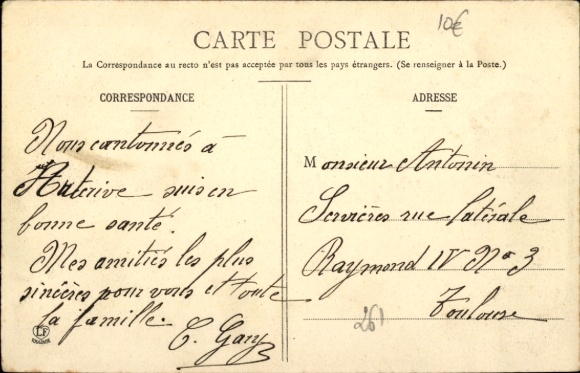 10€
CARTE POSTALE
La Correspondance au recto n'est pas acceptée par tous les pays étrangers. (Se renseigner à la Poste.)
CORRESPONDANCE
Nous cantonnés à
Hauterive suis en
bonne santé.
Mes amitiés les plus
sincères pour vous et toute
la famille.
C. Gary
LF
ADRESSE
Monsieur Antonin
Servières rue latérale
Raymond IV No 3
Toulouse
261